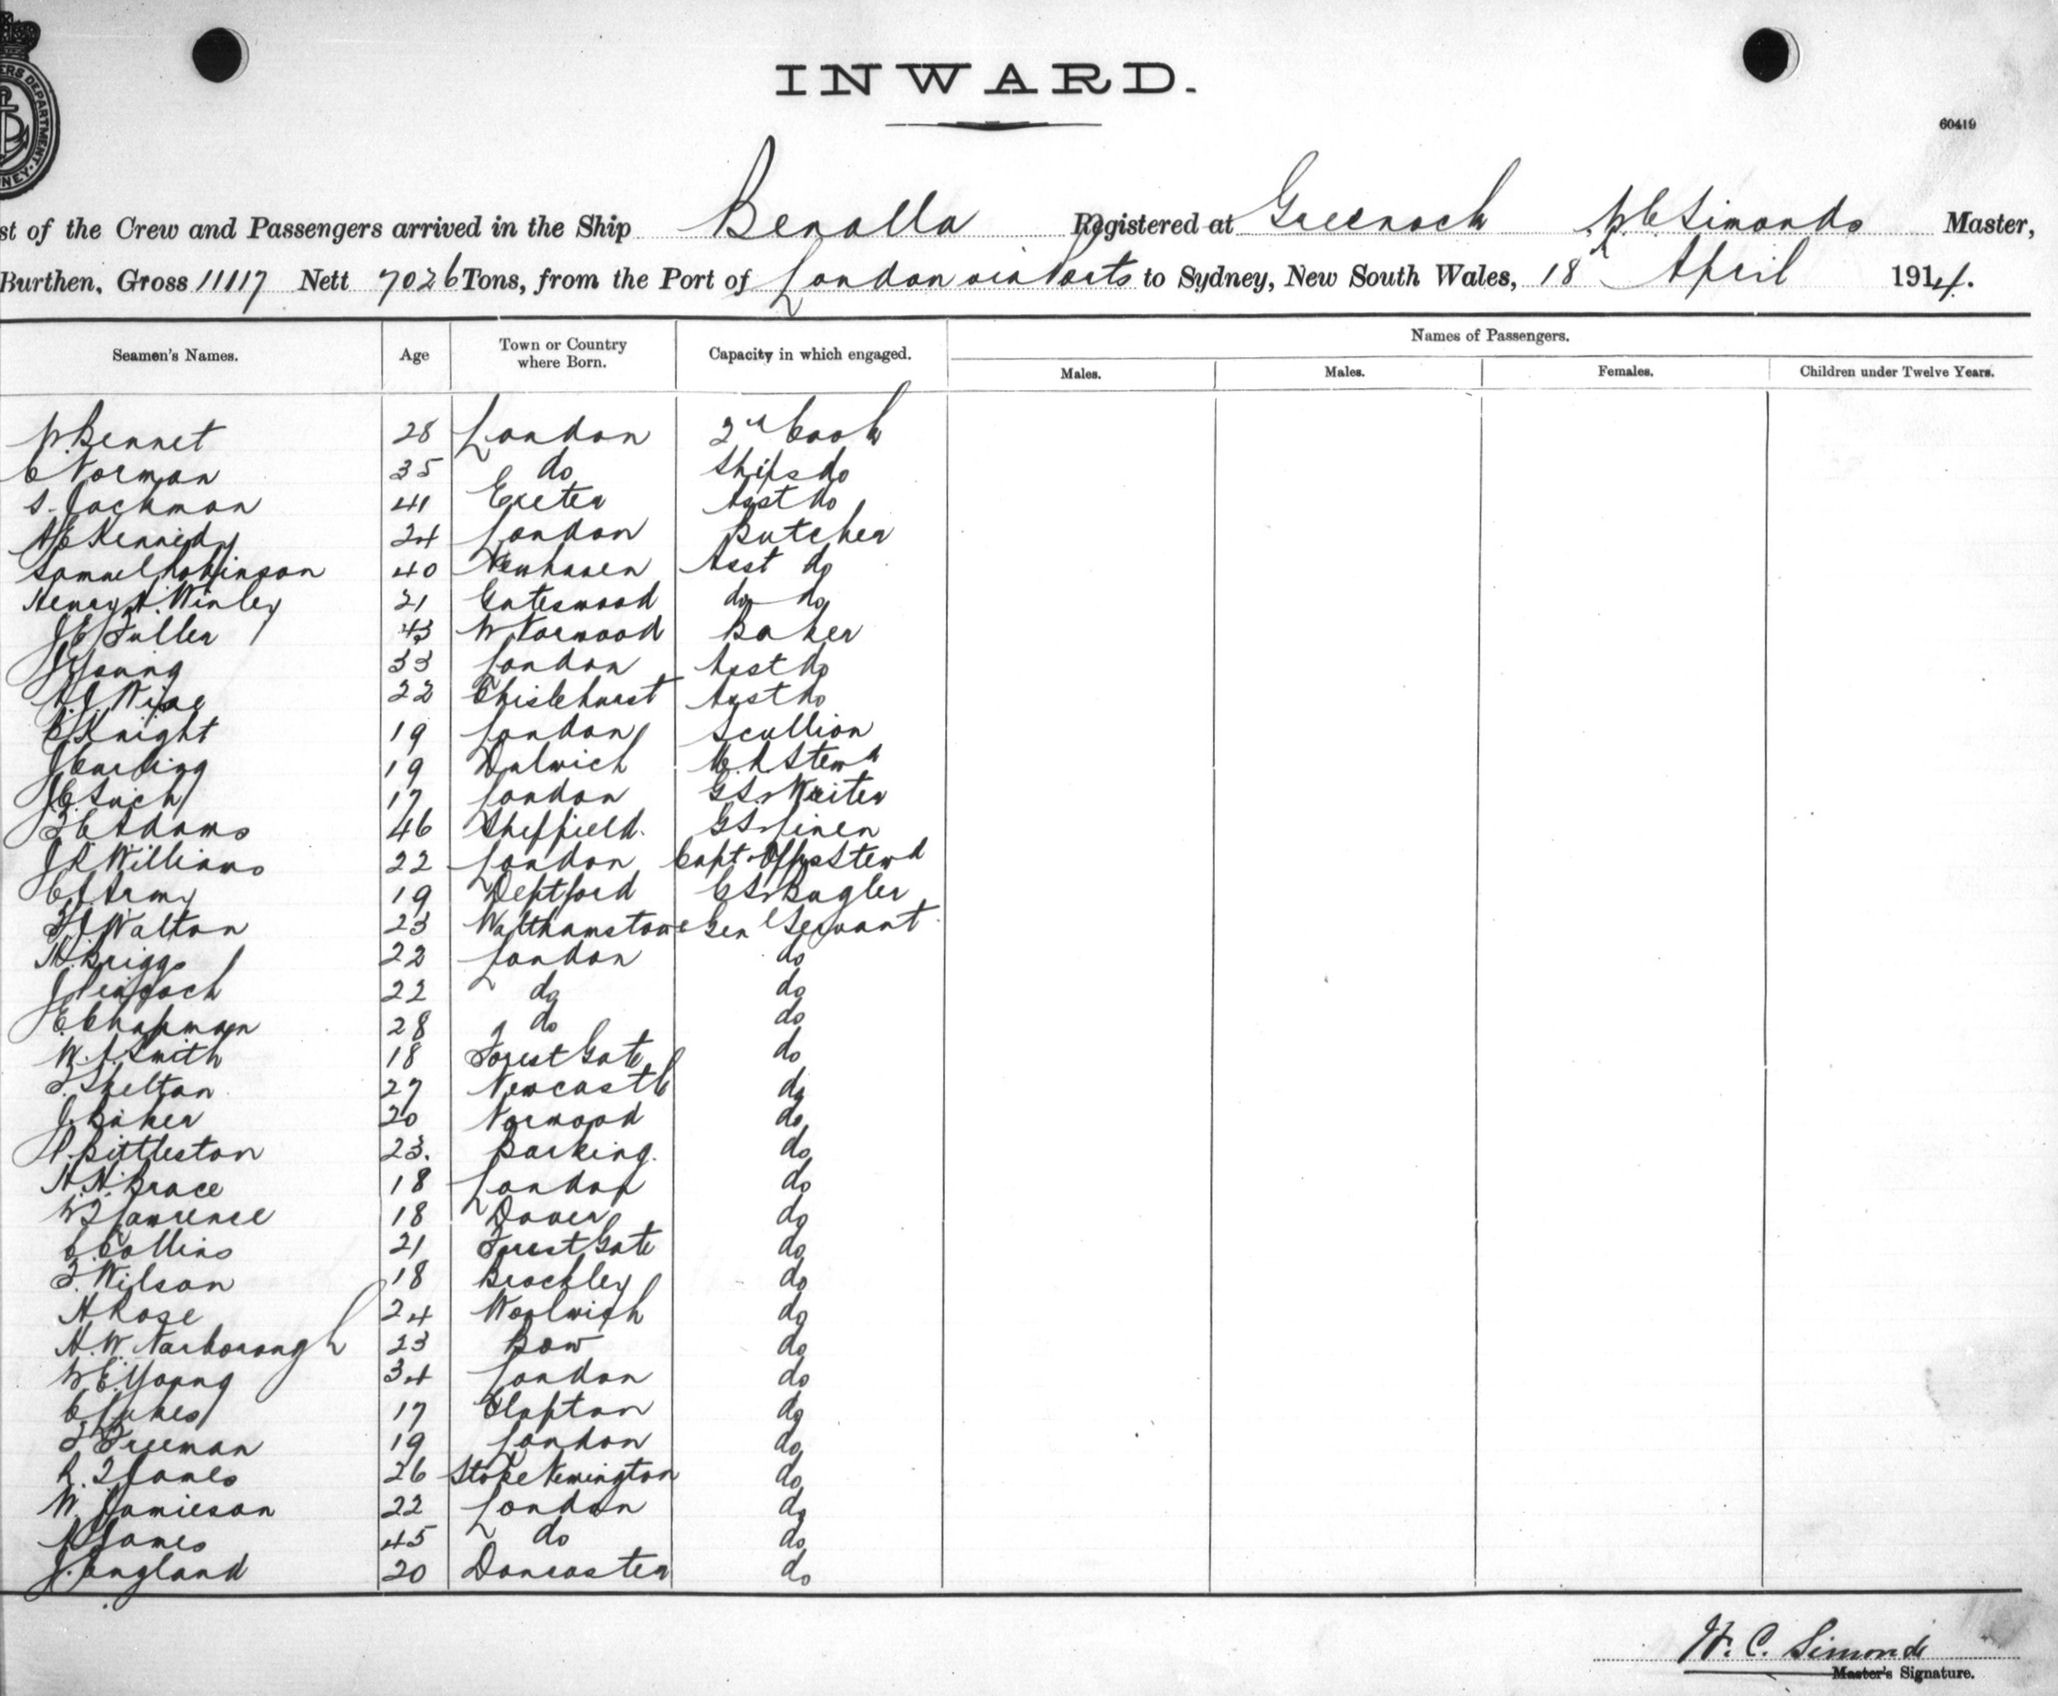 INWARD.
60419
ERS DEPARTMENT
NEY
st of the Crew and Passengers arrived in the Ship Benalla Registered at Greenock W C Simonds Master,
Burthen, Gross 11117 Nett 7026 Tons, from the Port of London via Ports to Sydney, New South Wales, 18 April 1914.
Names of Passengers.
Seamen's Names. Age Town or Country where Born. Capacity in which engaged. Males. Males. Females. Children under Twelve Years.
W Bennet 28 London 2nd Cook
C Norman 35 do Ships do
S. Jackman 41 Exeter Asst do
Kennedy 24 London Butcher
Samuel Robinson 40 Newhaven Asst do
Henry A. Winley 21 do do
J C Fuller 43 W Norwood Baker
J Young 33 London Asst do
Wise 22 Chislehurst Asst do
C. Knight 19 London Scullion
J Carding 19 Dulwich Stewd
J.C. Such 17 London G S Writer
F C Adams 46 Sheffield. G S Linen
J R Williams 22 London Capt Offrs Stewd
Army 19 Deptford G S Bugler
F J Walton 23 Walthamstowe Genl Servant
H. Briggs 22 London do
J Peacock 22 do do
E. Chapman 28 do do
W. A. Smith 18 Forest Gate do
F. Skelton 27 Newcastle do
J. Baker 20 Norwood do
P. Bittleston 23. Barking. do
H. H. Brace 18 London do
W F Lawrence 18 Dover do
C Collins 21 Forest Gate do
F. Wilson 18 Brockley do
H Rose 24 Woolwich do
H. W. Narborough 23 Bow do
W E Young 34 London do
C Jukes 17 Clapton do
F Freeman 19 London do
R. F James 26 Stoke Newington do
W. Jamieson 22 London do
James 45 do do
J. England 20 Doncaster do
W. C. Simonds
Master's Signature.